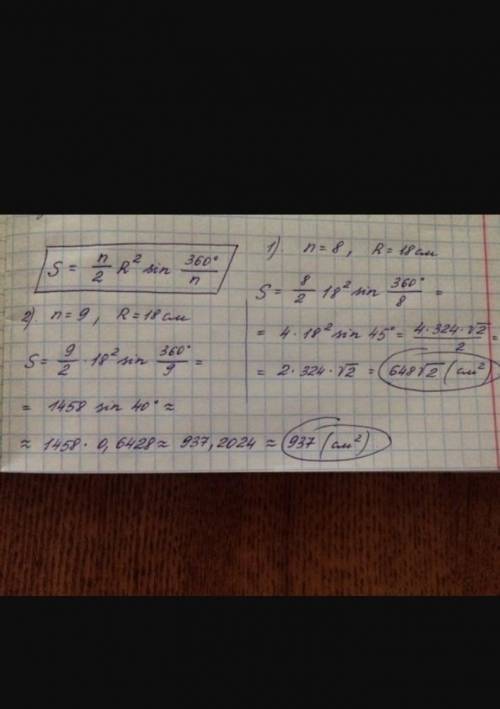 S = n/2 R² sin 360°/n
1) n = 8, R = 18 см
S = 8/2 · 18² sin 360°/8 =
= 4 · 18² sin 45° = 4 · 324 · √2/2 =
= 2 · 324 · √2 = 648√2 (см²)
2) n = 9, R = 18 см
S = 9/2 · 18² sin 360°/9 =
= 1458 sin 40° ≈
≈ 1458 · 0,6428 ≈ 937,2024 ≈ 937 (см²)